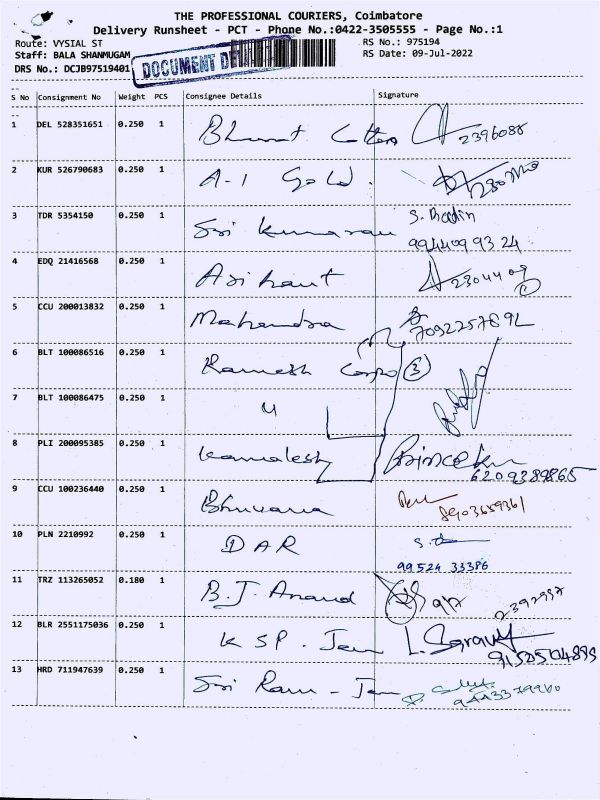 THE PROFESSIONAL COURIERS, Coimbatore
Delivery Runsheet - PCT - Phone No.:0422-3505555 - Page No.:1
Route: VYSIAL ST RS No.: 975194
Staff: BALA SHANMUGAM RS Date: 09-Jul-2022
DRS No.: DCJB97519401 DOCUMENT
S No Consignment No Weight PCS Consignee Details Signature
1 DEL 528351651 0.250 1 Bharat 2396088
2 KUR 526790683 0.250 1 A-1 Gold.
3 TDR 5354150 0.250 1 Sri Kumaran S. Badin
9944099324
4 EDQ 21416568 0.250 1 Arihant 2304409
5 CCU 200013832 0.250 1 Mahendra 7092257892
6 BLT 100086516 0.250 1 Ramesh Corpo 3
7 BLT 100086475 0.250 1 "
8 PLI 200095385 0.250 1 Kamalesh
6209389865
9 CCU 100236440 0.250 1 Bhuvana 8903659361
10 PLN 2210992 0.250 1 DAR
99524 33386
11 TRZ 113265052 0.180 1 B.J. Anand 9/7 2392997
12 BLR 2551175036 0.250 1 KSP. Jew L. Saravan
13 HRD 711947639 0.250 1 Sri Ram - Jew